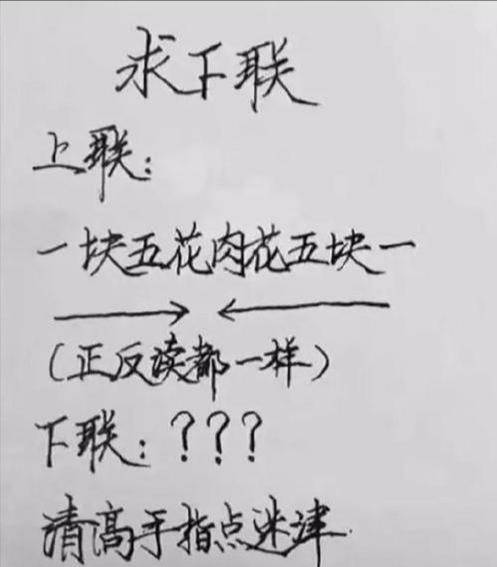 求下联
上联:
一块五花肉花五块一
(正反读都一样)
下联:???
请高手指点迷津.